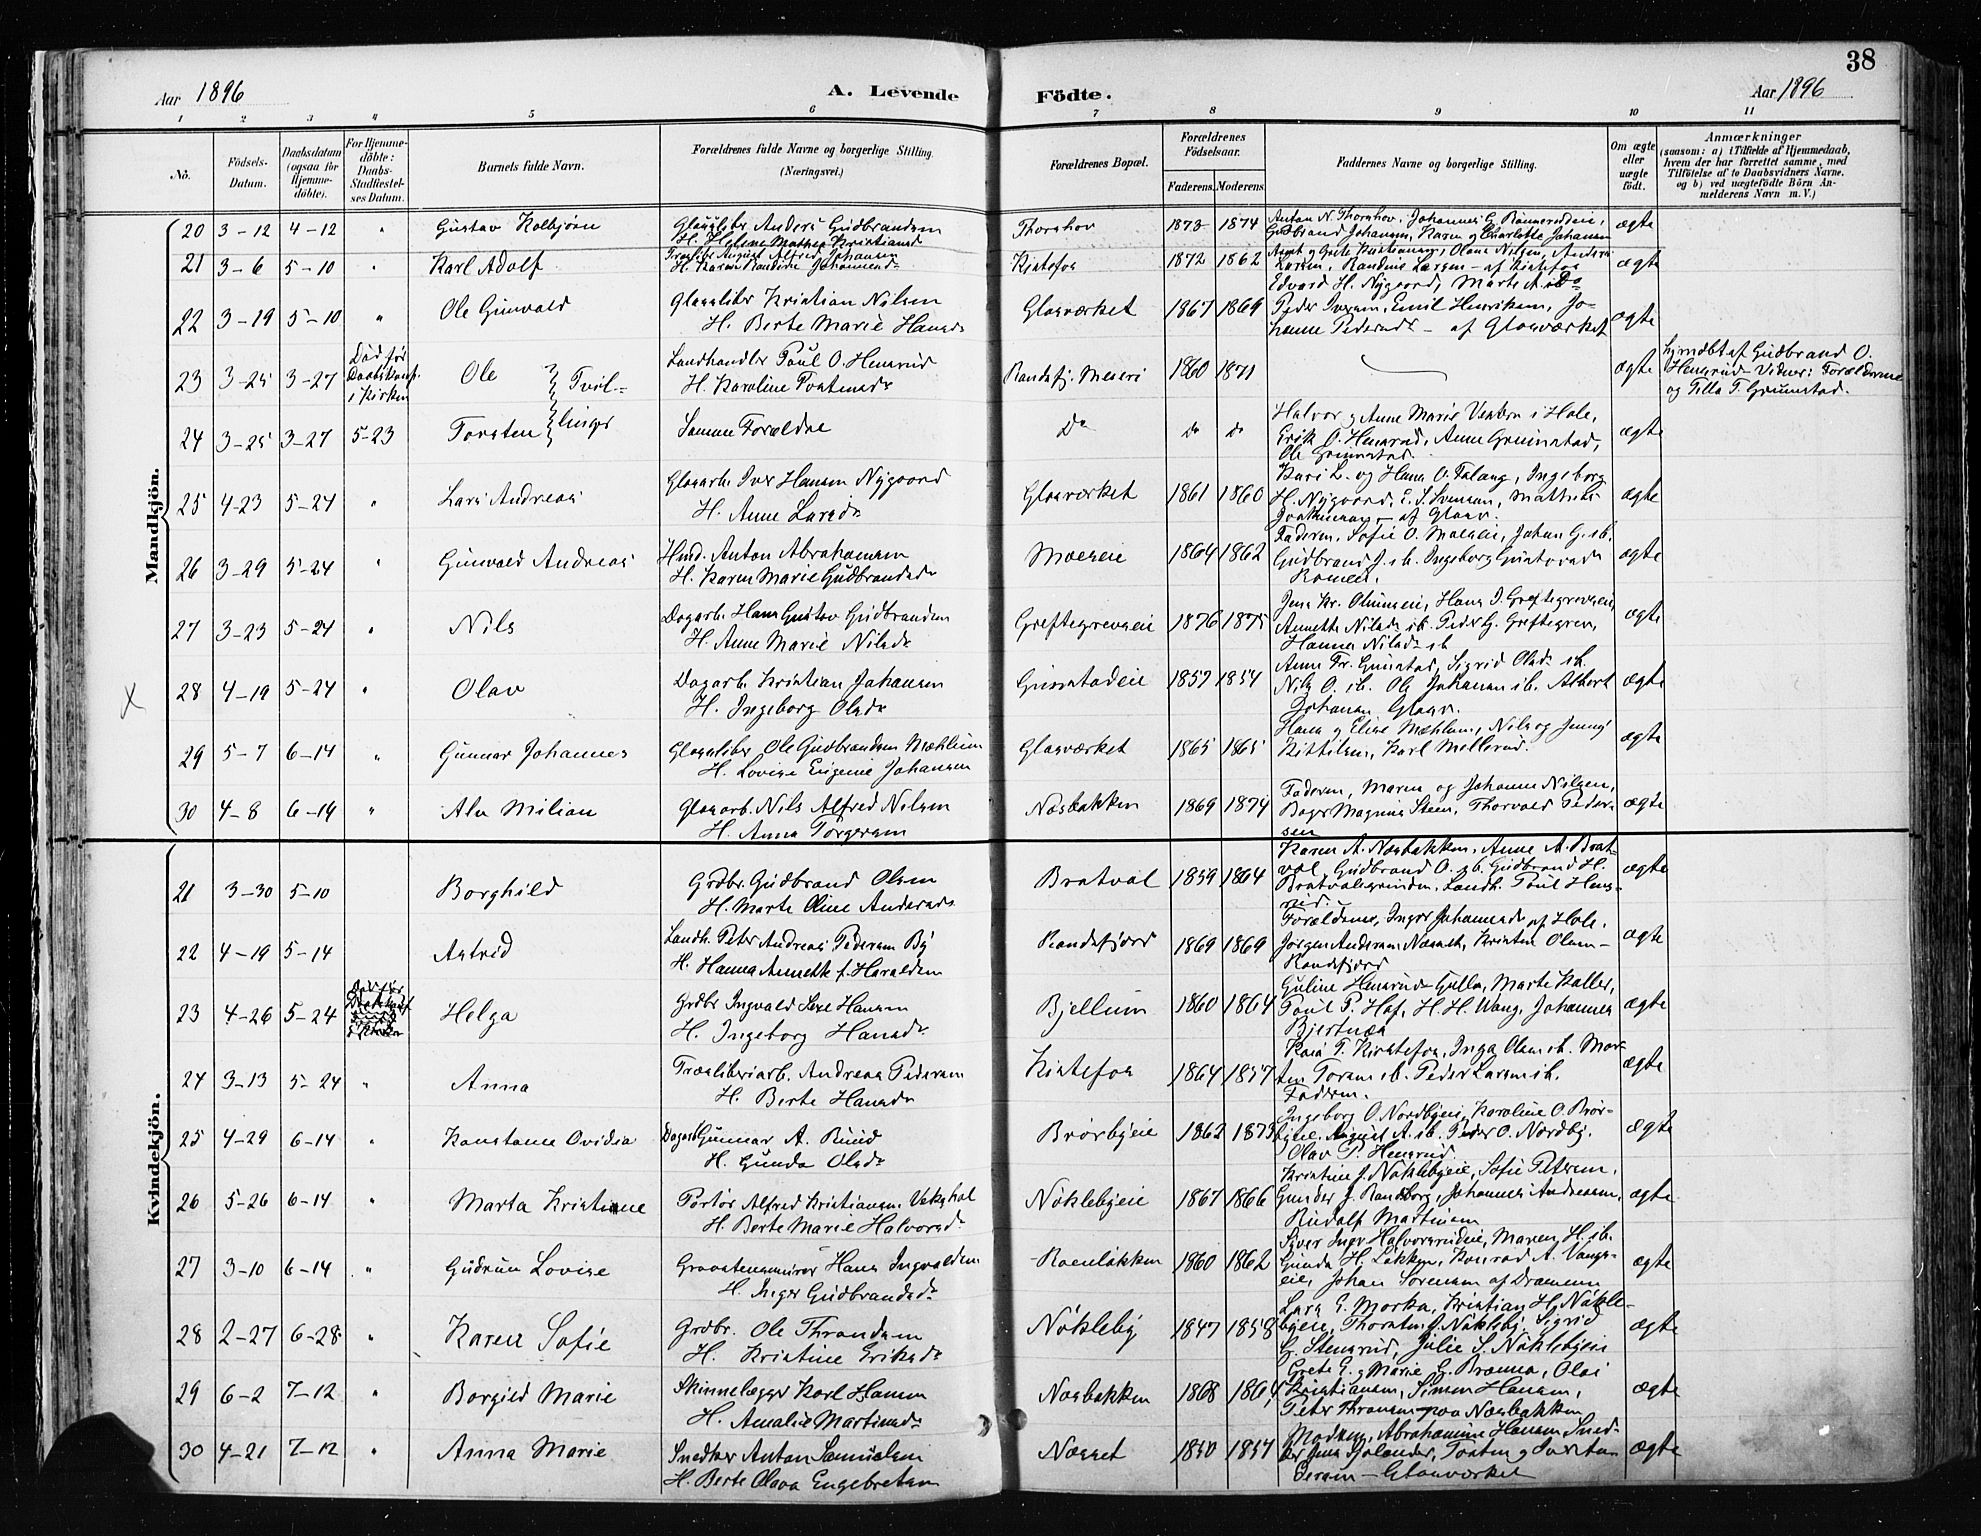 38
Aar 1896
A. Levende
Födte.
Aar 1896
1 2 3 4 5 6 7 8 9 10 11
No.
Födsels-
Datum.
Daabsdatum
(ogsaa for
Hjemme-
döbte).
For Hjemme-
döbte:
Daabs-
Stadfæstel-
ses Datum.
Barnets fulde Navn.
Forældrenes fulde Navne og borgerlige Stilling.
(Næringsvei.)
Forældrenes Bopæl.
Forældrenes
Födselsaar.
Faderens. Moderens.
Faddernes Navne og borgerlige Stilling.
Om ægte
eller
uægte
födt.
Anmærkninger
(saasom: a) i Tilfælde af Hjemmedaab,
hvem der har forrettet samme, med
Tilföielse af to Daabsvidners Navne.
og b) ved uægtefödte Börn An-
melderens Navn m.V.)
Mandkjön.
20 3-12 4-12 " Gustav Kolbjørn
Glassliber Anders Gudbrandsen
H. Helene Mathea Kristiansd
Thornhov 1873 1874
Anton N. Thornhov, Johannes G.
Gudbrand Johansen, Karen og Charlotte Johansen
ægte
21 3-6 5-10 " Karl Adolf
August Alfred Johansen
H. Karen Johannesd
Kistefos 1872 1862
Olava Nilsen, Anders
Larsen, Randine Larsen - af Kistefos
ægte
22 3-19 5-10 " Ole Gunvald
Glassliber Kristian Nilsen
H. Berte Marie Hansd
Glasværket 1867 1869
Edvard H. Nygaard, Marte A. Do
Peder Iversen, Emil Henriksen, Jo-
hanne Pedersd - af Glasværket
ægte
23 3-25 3-27
Död för
Daabskast
i Kirken
Ole
Tvil-
Landhandler Paul O. Hensrud
H. Karoline Torstensd
Randsfj. Meieri 1860 1871
ægte
Hjmdbt af Gudbrand O.
Hensrud Vidner: Forældrene
og Tilla T. Grimstad.
24 3-25 3-27 5-23 Torsten
linger
Samme Forældre
Do Do Do
Halvor og Anne Marie i Hole,
Erik O. Hensrud, Anne Grimstad,
Ole Grimstad
ægte
25 4-23 5-24 " Lars Andreas
Glasarb. Iver Hansen Nygaard
H. Anne Larsd
Glasværket 1861 1860
Kari L. og Hans O. Falang, Ingeborg
H. Nygaard, E. S. Svensen, Mathias
- af Glasv.
ægte
26 3-29 5-24 " Gunvald Andreas
Hmd. Anton Abrahamsen
H. Karen Marie Gudbrandsd
Moeseie 1864 1862
Faderen, Sofie O. Moeseie, Johan G. sb.
Gudbrand J. sb. Ingeborg Gustavsd
ægte
27 3-23 5-24 " Nils
Dagarb. Hans Gustav Gudbrandsen
H. Anne Marie Nilsd
Greftegrevseie 1876 1875
Jens Kr. Hans D. Greftegrevseie,
Annette Nilsd sb. Peder G. Greftegrev,
Hanna Nilsd sb
ægte
28 4-19 5-24 " Olav
Dagarb. Kristian Johansen
H. Ingeborg Olsd
Grimstadeie 1857 1854
Anne Fr. Grimstad, Sigrid Olsd sb.
Nils O. sb. Ole Johansen sb. Albert
Johansen Glasv.
ægte
29 5-7 6-14 " Gunnar Johannes
Glassliber Ole Gudbrandsen Mæhlum
H. Lovise Eugenie Johansen
Glasværket 1865 1865
Hans og Elise Mæhlum, Nils og Jenny
Kittilsen, Karl Mellerud.
ægte
30 4-8 6-14 " Alv Milian
Glasarb. Nils Alfred Nilsen
H. Anna Torgersen
Næsbakken 1869 1874
Faderen, Maren og Johanne Nilsen,
Bager Magnus Steen, Thorvald Peder-
sen
ægte
Kvindekjön.
21 3-30 5-10 Borghild
Grdbr. Gudbrand Olsen
H. Marte Oline Andersd
Bratval 1859 1864
Karen A. Næsbakken, Anne A. Brat-
val, Gudbrand O. sb. Gudbrand H.
Bratvalsgrinden, Landh. Paul Hens-
rud.
ægte
22 4-19 5-14 Astrid
Landh. Peter Andreas Pedersen By
H. Hanna Annette f. Haraldsen
Randsfjord 1869 1869
Forældrene, Inger Johannesd af Hole,
Jørgen Andersen Næsset, Kristen Olsen -
Randsfjord
ægte
23 4-26 5-24 Helga
Grdbr Ingvald Hansen
H. Ingeborg Hansd
Bjellum 1860 1864
Guline Hensrud Gulla, Marte Koller,
Paul P. Hof, H. H. Wang, Johannes
Bjertnæs
ægte
24 3-13 5-24 " Anna
Træsliberiarb. Andreas Pedersen
H. Berte Hansd
Kistefos 1864 1857
Kaia T. Kistefos, Inga Olsen sb. Mar-
tin Torsen sb. Peder Larsen sb.
Faderen.
ægte
25 4-29 6-14 " Konstanse Ovidia
Dagarb Gunnar A. Ruud
H. Gunda Olsd
Brørbyeie 1862 1873
Ingeborg O. Nordbyeie, Karoline O. Brør-
byeie. August A. sb. Peder O. Nordby.
Olav P. Hensrud.
ægte
26 5-26 6-14 " Marta Kristiane
Portör Alfred Kristiansen Vekshal
H. Berte Marie Halvorsd
Nøklebyeie 1867 1866
Kristine J. Nøklebyeie, Sofie Petersen.
Gunder J. Randsborg, Johannes Andersen,
Rudolf Martinsen
ægte
27 3-10 6-14 " Gudrun Lovise
Graastensmurer Hans Ingvaldsen
H. Inger Gudbrandsd
Roenløkken 1860 1862
Siver Inger Halvorsrudeie, Maren H. sb.
Gunda H. Løkken, Konrad A. Vangs-
eie, Johan Sørensen af Drammen
ægte
28 2-27 6-28 " Karen Sofie
Grdbr. Ole Throndsen
H. Kristine Eriksd
Nøkleby 1847 1858
Lars E. Morka, Kristian H. Nøkle-
byeie, Thorsten J. Nøkleby, Sigrid
G. Stensrud, Julie S. Nøklebyeie
ægte
29 6-2 7-12 " Borgild Marie
Skinnelægger Karl Hansen
H. Amalie Martinsd
Næsbakken 1868 1864
Grete G. og Marie G. Brænna, Olai
Kristiansen, Simen Hansen,
Peter Thronsen paa Næsbakken
ægte
30 4-21 7-12 " Anna Marie
Snedker Anton Samuelsen
H. Berte Olava Engebretsen
Næsset 1850 1854
Madsen, Abrahamine Hansen Sned-
ker Jens Sjølander, Torsten og
Iversen - Glasværket
ægte